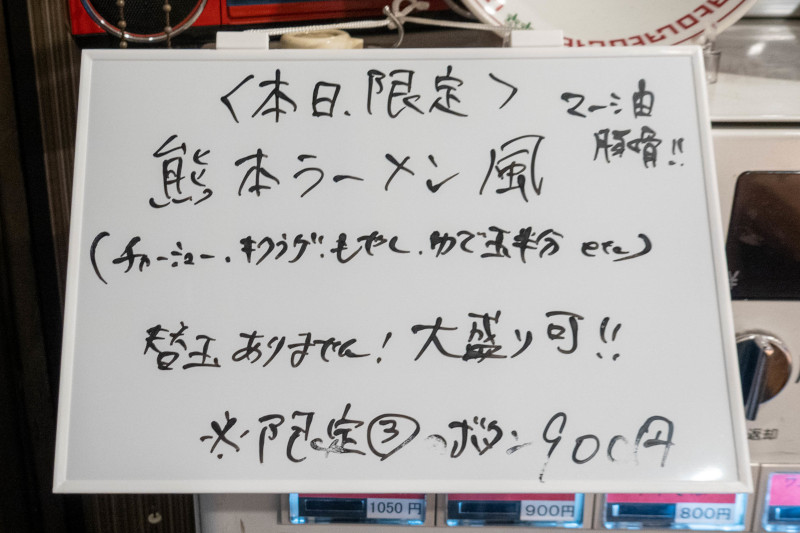 〈本日、限定〉
マー油
豚骨!!
熊本ラーメン風
(チャーシュー、キクラゲ、もやし、ゆで玉半分 etc)
替玉ありません! 大盛り可!!
※限定③ボタン 900円
返却
1050円
900円
800円